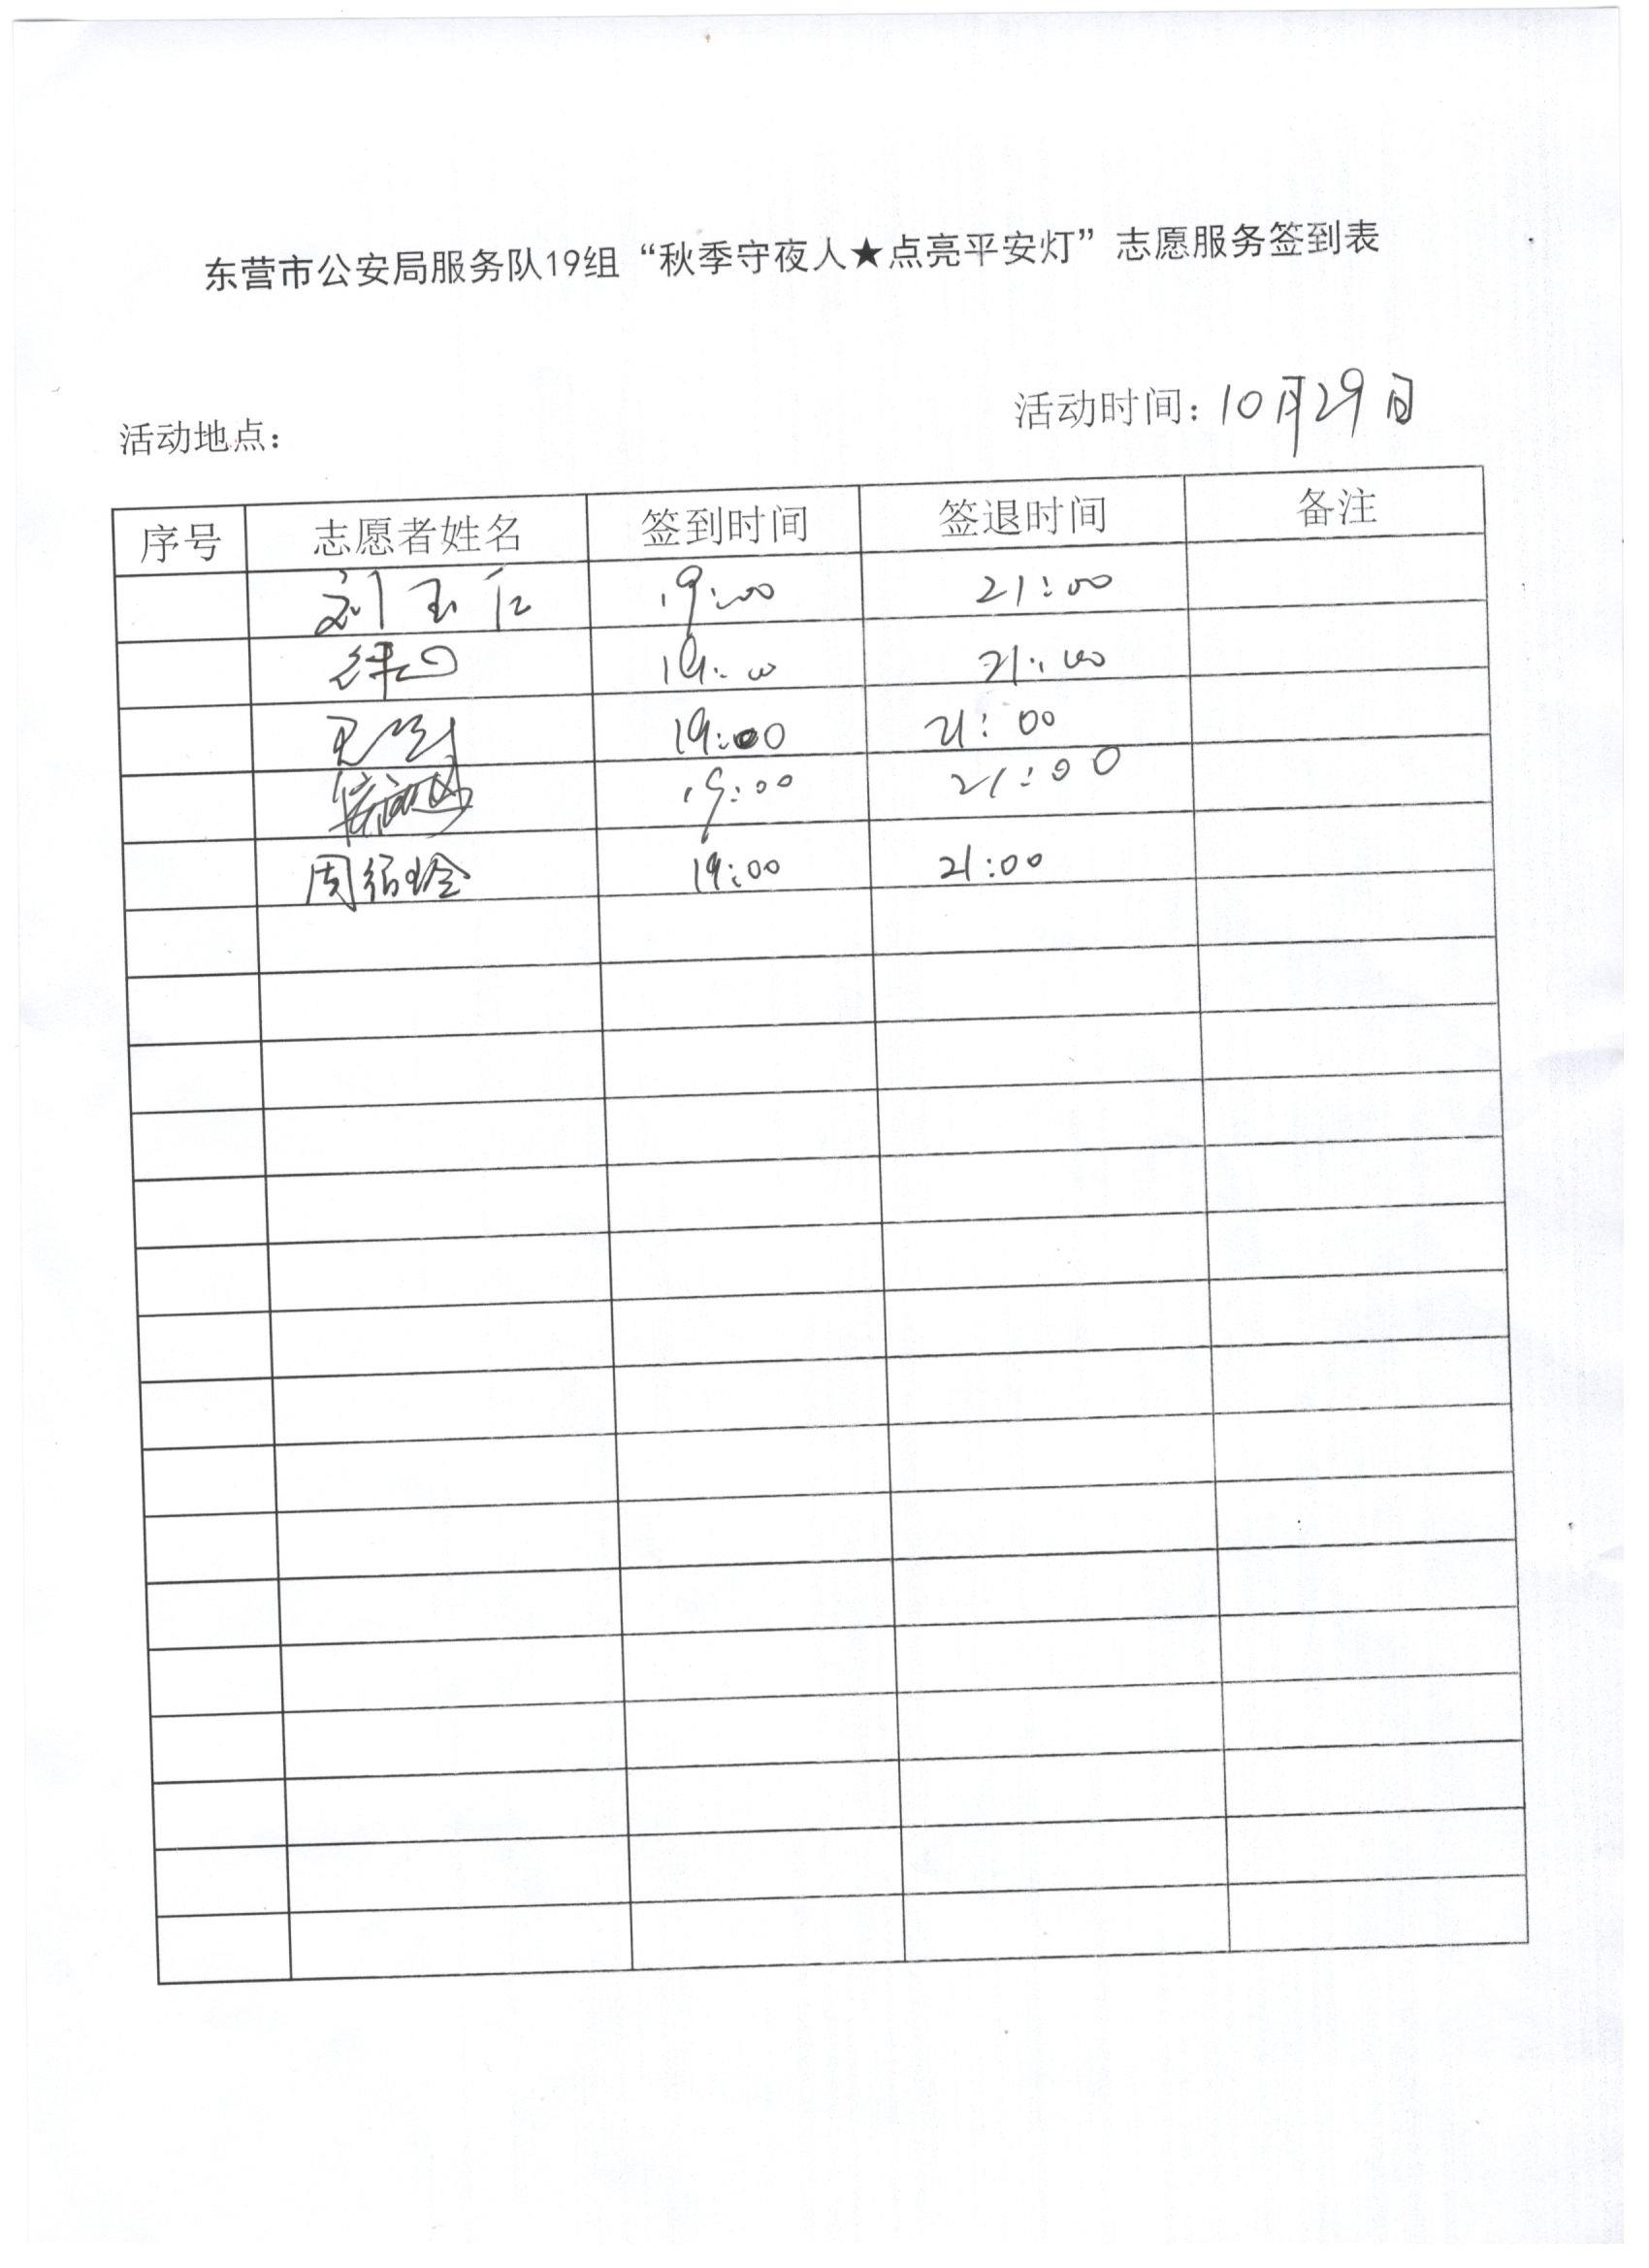 东营市公安局服务队19组“秋季守夜人★点亮平安灯”志愿服务签到表
活动地点： 活动时间：10月29日
序号 志愿者姓名 签到时间 签退时间 备注
刘玉仁 19:00 21:00
19:00 21:00
19:00 21:00
19:00 21:00
周绍玲 19:00 21:00